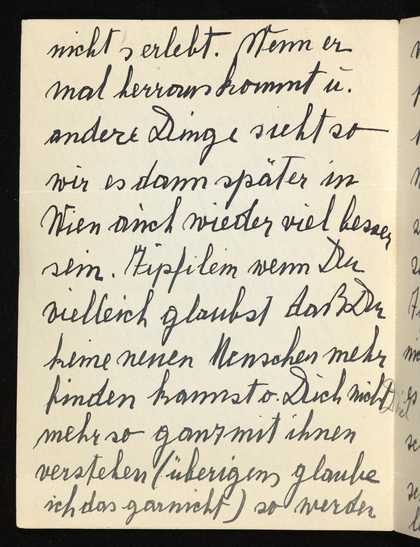 nichts erlebt. Wenn er
mal herrauskommt u.
andere Dinge sieht so
wir es dann später in
Wien auch wieder viel besser
sein. Zipfilein wenn Du
vielleich glaubst daß Du
keine neuen Menschen mehr
finden kannst o. Dich nicht
mehr so ganz mit ihnen
verstehen (überigens glaube
ich das garnicht) so werden